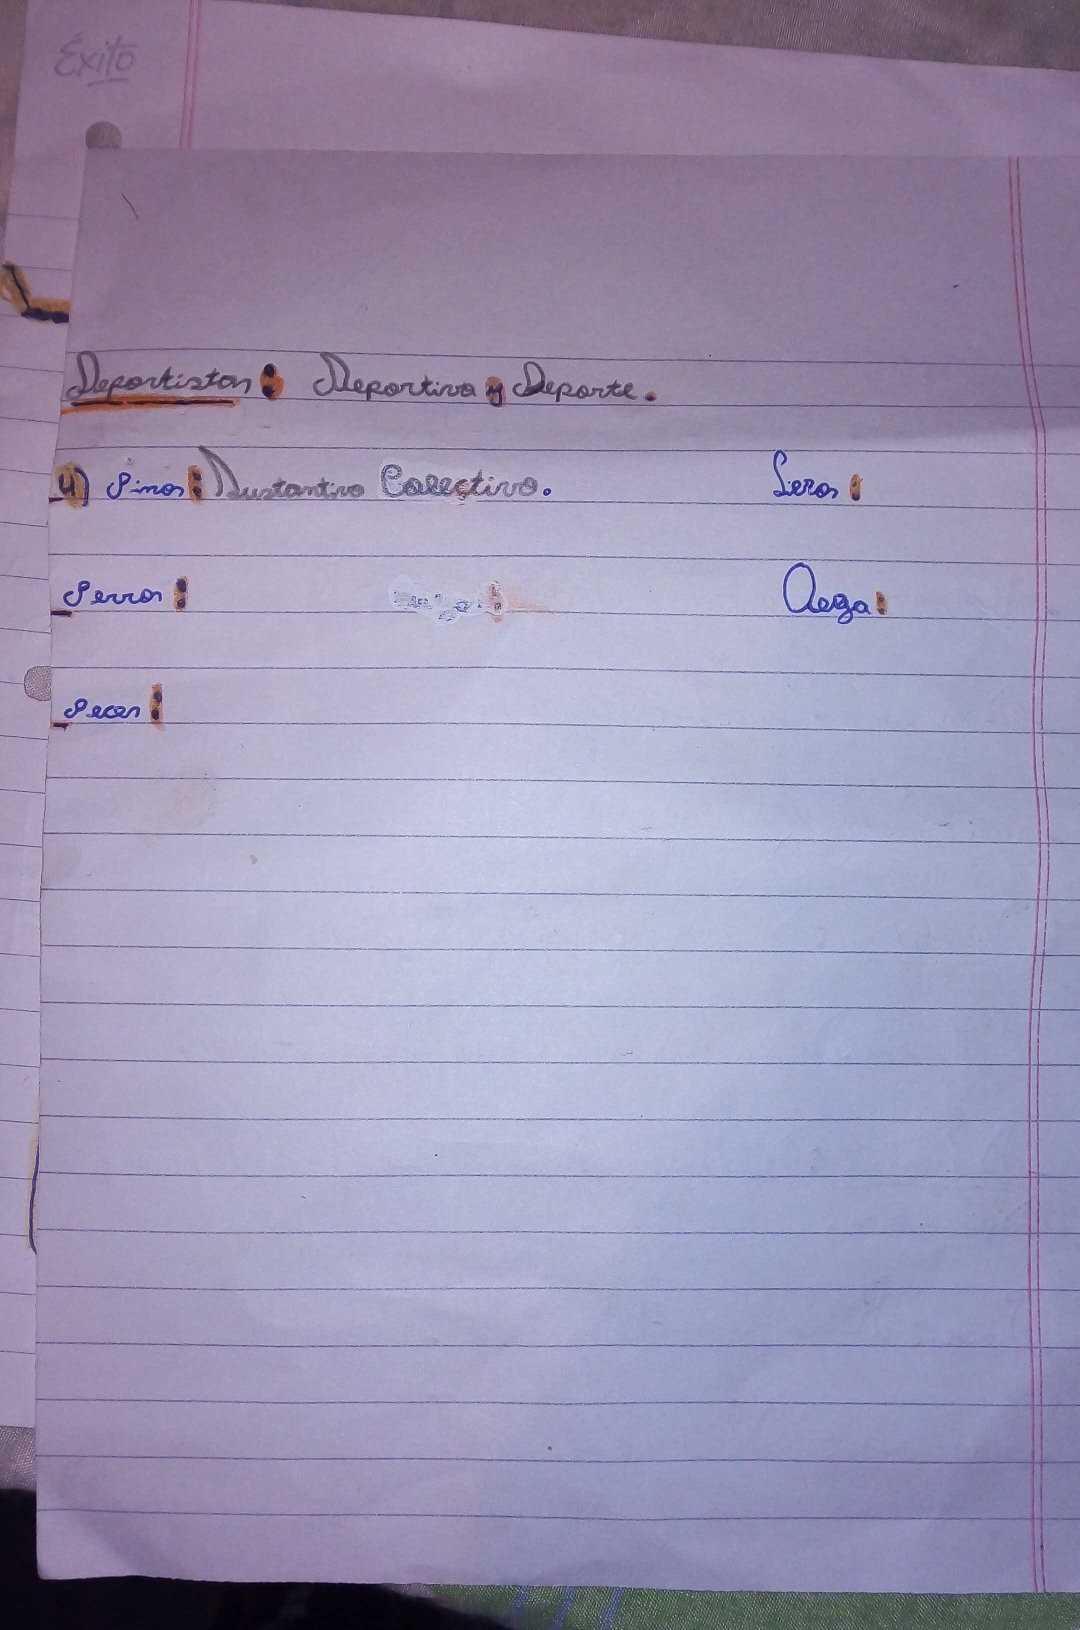 Éxito
Deportistas: Deportivo y Deporte.
4) Pinos: Sustantivo Colectivo.
Perros:
Peces: